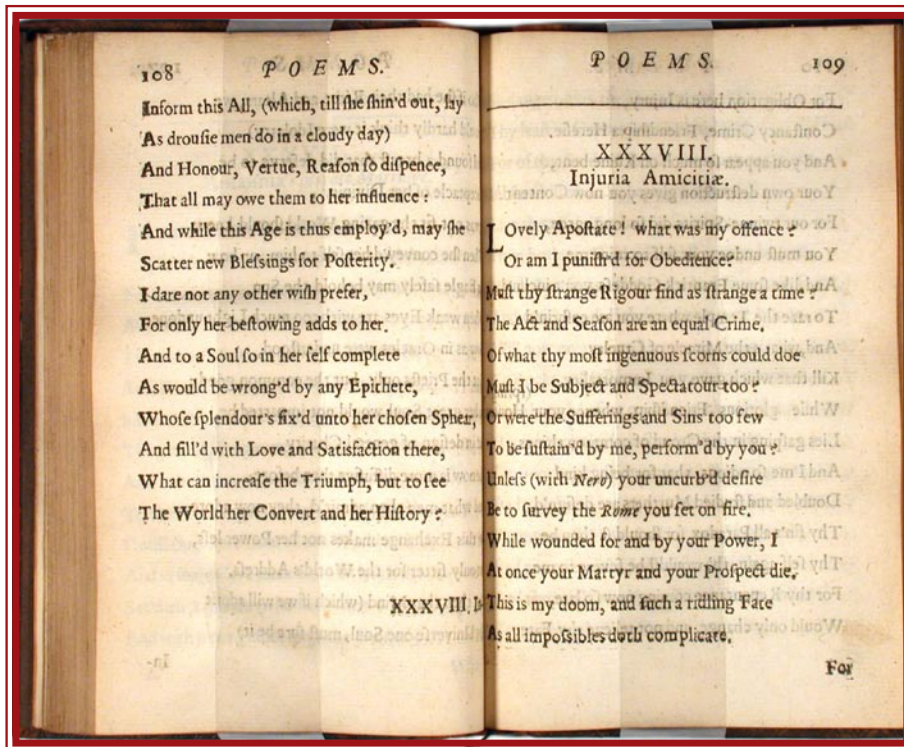 108 POEMS.
Inform this All, (which, till ſhe ſhin'd out, lay
As drouſie men do in a cloudy day)
And Honour, Vertue, Reaſon ſo diſpence,
That all may owe them to her influence :
And while this Age is thus employ'd, may ſhe
Scatter new Bleſsings for Poſterity.
I dare not any other wiſh prefer,
For only her beſtowing adds to her.
And to a Soul ſo in her ſelf complete
As would be wrong'd by any Epithete,
Whoſe ſplendour's fix'd unto her choſen Sphear,
And fill'd with Love and Satisfaction there,
What can increaſe the Triumph, but to ſee
The World her Convert and her Hiſtory ?
XXXVIII.
POEMS. 109
XXXVIII.
Injuria Amicitiæ.
Lovely Apoſtate ! what was my offence ?
Or am I puniſh'd for Obedience?
Muſt thy ſtrange Rigour find as ſtrange a time ?
The Act and Seaſon are an equal Crime.
Of what thy moſt ingenuous ſcorns could doe
Muſt I be Subject and Spectatour too ?
Or were the Sufferings and Sins too few
To be ſuſtain'd by me, perform'd by you ?
Unleſs (with Nero) your uncurb'd deſire
Be to ſurvey the Rome you ſet on fire.
While wounded for and by your Power, I
At once your Martyr and your Proſpect die.
This is my doom, and ſuch a ridling Fate
As all impoſsibles doth complicate.
For